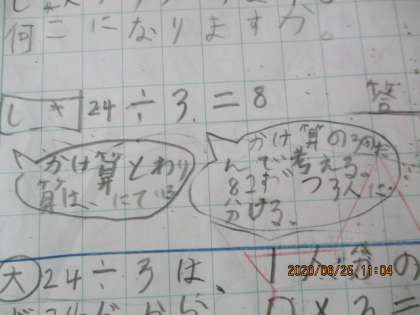 何こになりますか。
しき 24÷3.=8
答
かけ算とわり
算は、にている
かけ算の
んで考える。
8こずつ3人に
分ける。
大 24÷3は、1人分の
2020/06/25 11:04
×3=